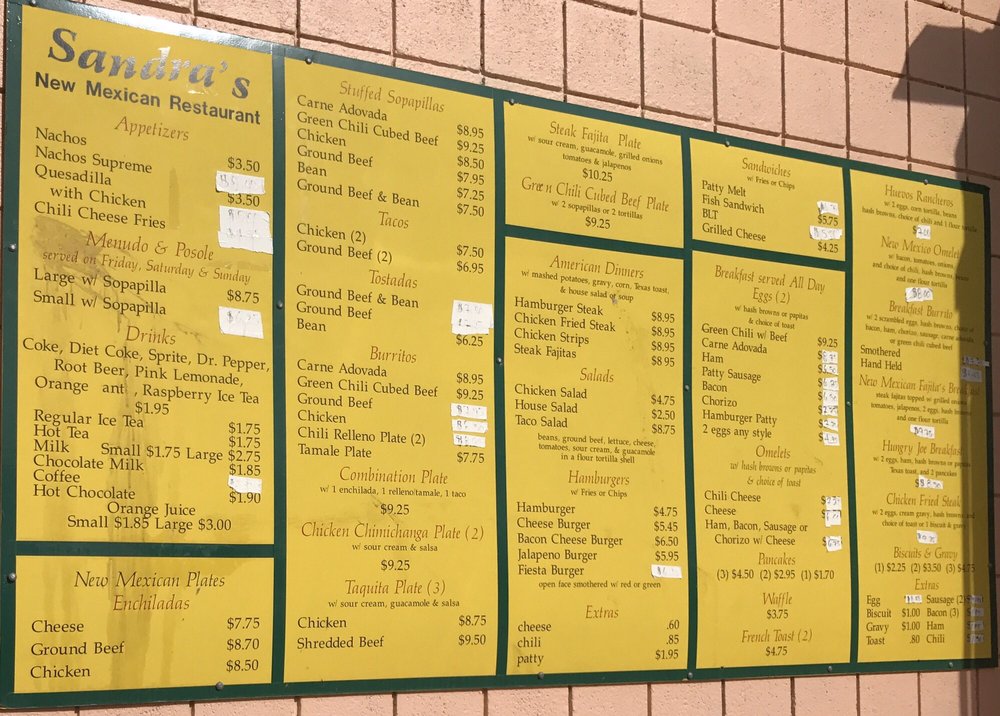 Sandra's
New Mexican Restaurant
Appetizers
Nachos $3.50
Nachos Supreme
Quesadilla $3.50
with Chicken
Chili Cheese Fries
Menudo & Posole
served on Friday, Saturday & Sunday
Large w/ Sopapilla $8.75
Small w/ Sopapilla
Drinks
Coke, Diet Coke, Sprite, Dr. Pepper,
Root Beer, Pink Lemonade,
Orange ant , Raspberry Ice Tea
$1.95
Regular Ice Tea $1.75
Hot Tea $1.75
Milk Small $1.75 Large $2.75
Chocolate Milk $1.85
Coffee
Hot Chocolate $1.90
Orange Juice
Small $1.85 Large $3.00
New Mexican Plates
Enchiladas
Cheese $7.75
Ground Beef $8.70
Chicken $8.50
Stuffed Sopapillas
Carne Adovada $8.95
Green Chili Cubed Beef $9.25
Chicken $8.50
Ground Beef $7.95
Bean $7.25
Ground Beef & Bean $7.50
Tacos
Chicken (2) $7.50
Ground Beef (2) $6.95
Tostadas
Ground Beef & Bean
Ground Beef
Bean $6.25
Burritos
Carne Adovada $8.95
Green Chili Cubed Beef $9.25
Ground Beef
Chicken
Chili Relleno Plate (2)
Tamale Plate $7.75
Combination Plate
w/ 1 enchilada, 1 relleno/tamale, 1 taco
$9.25
Chicken Chimichanga Plate (2)
w/ sour cream & salsa
$9.25
Taquita Plate (3)
w/ sour cream, guacamole & salsa
Chicken $8.75
Shredded Beef $9.50
Steak Fajita Plate
w/ sour cream, guacamole, grilled onions
tomatoes & jalapenos
$10.25
Green Chili Cubed Beef Plate
w/ 2 sopapillas or 2 tortillas
$9.25
American Dinners
w/ mashed potatoes, gravy, corn, Texas toast,
& house salad or soup
Hamburger Steak $8.95
Chicken Fried Steak $8.95
Chicken Strips $8.95
Steak Fajitas $8.95
Salads
Chicken Salad $4.75
House Salad $2.50
Taco Salad $8.75
beans, ground beef, lettuce, cheese,
tomatoes, sour cream, & guacamole
in a flour tortilla shell
Hamburgers
w/ Fries or Chips
Hamburger $4.75
Cheese Burger $5.45
Bacon Cheese Burger $6.50
Jalapeno Burger $5.95
Fiesta Burger
open face smothered w/ red or green
Extras
cheese .60
chili .85
patty $1.95
Sandwiches
w/ Fries or Chips
Patty Melt
Fish Sandwich $5.75
BLT
Grilled Cheese $4.25
Breakfast served All Day
Eggs (2)
w/ hash browns or papitas
& choice of toast
Green Chili w/ Beef $9.25
Carne Adovada
Ham
Patty Sausage
Bacon
Chorizo
Hamburger Patty
2 eggs any style
Omelets
w/ hash browns or papitas
& choice of toast
Chili Cheese
Cheese
Ham, Bacon, Sausage or
Chorizo w/ Cheese
Pancakes
(3) $4.50 (2) $2.95 (1) $1.70
Waffle
$3.75
French Toast (2)
$4.75
Huevos Rancheros
w/ 2 eggs, corn tortilla, beans
hash browns, choice of chili and 1 flour tortilla
New Mexico Omelet
w/ bacon, tomatoes, onions
and choice of chili, hash browns, beans
and one flour tortilla
$8.00
Breakfast Burrito
w/ 2 scrambled eggs, hash browns, choice of
bacon, ham, chorizo, sausage, carne adovada
or green chili cubed beef
Smothered
Hand Held
New Mexican Fajita's Breakfast
steak fajitas topped w/ grilled onions,
tomatoes, jalapenos, 2 eggs, hash browns
and one flour tortilla
Hungry Joe Breakfast
w/ 2 eggs, ham, hash browns or papitas
Texas toast, and 2 pancakes
Chicken Fried Steak
w/ 2 eggs, cream gravy, hash browns and
choice of toast or 1 biscuit & gravy
Biscuits & Gravy
(1) $2.25 (2) $3.50 (3) $4.75
Extras
Egg Sausage (2)
Biscuit $1.00 Bacon (3)
Gravy $1.00 Ham
Toast .80 Chili